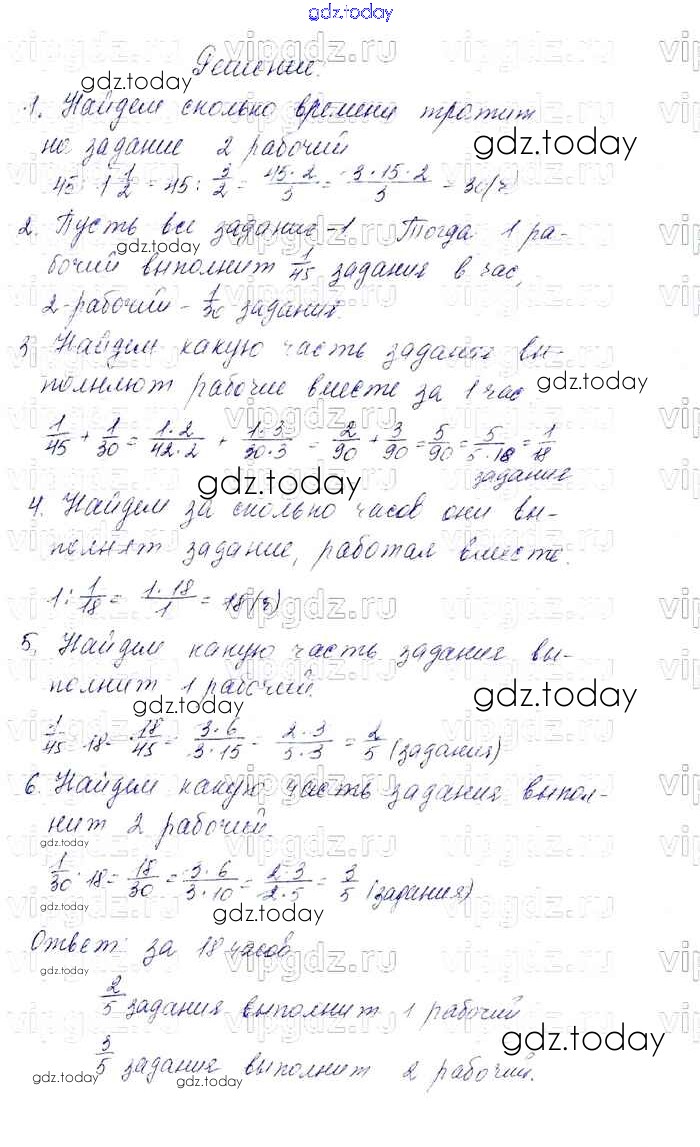 gdz.today
Решение.
1. Найдем сколько времени тратит
на задание 2 рабочий
45 : 1 1/2 = 45 : 3/2 = 45·2/3 = 3·15·2/3 = 30(ч)
2. Пусть все задание – 1. Тогда 1 ра-
бочий выполнит 1/45 задания в час,
2-рабочий – 1/30 задания.
3 Найдем какую часть задания вы-
полняют рабочие вместе за 1 час
1/45 + 1/30 = 1·2/42·2 + 1·3/30·3 = 2/90 + 3/90 = 5/90 = 5/5·18 = 1/18
задания
4. Найдем за сколько часов они вы-
полнят задание, работая вместе.
1 : 1/18 = 1·18/1 = 18(ч)
5. Найдем какую часть задания вы-
полнит 1 рабочий.
1/45 · 18 = 18/45 = 3·6/3·15 = 2·3/5·3 = 2/5 (задания)
6. Найдем какую часть задания выпол-
нит 2 рабочий.
1/30 · 18 = 18/30 = 3·6/3·10 = 2·3/2·5 = 3/5 (задания)
Ответ: за 18 часов
2/5 задания выполнит 1 рабочий
3/5 задания выполнит 2 рабочий.